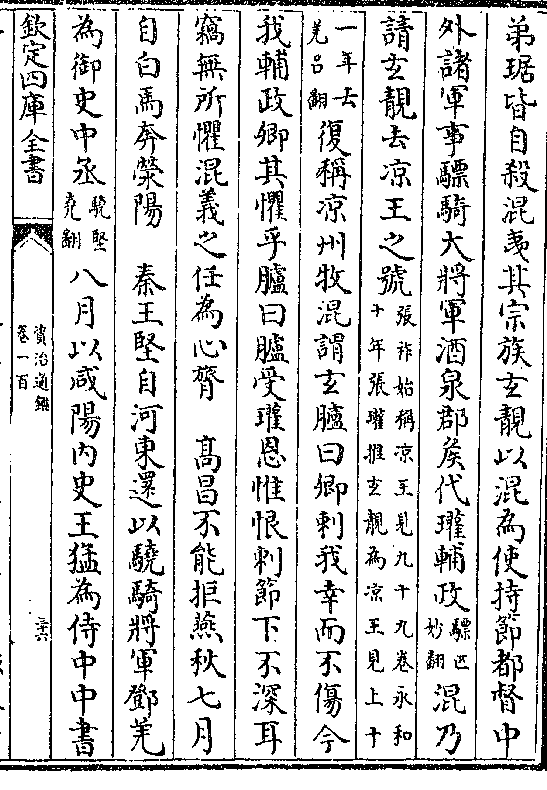 弟琚皆自殺混夷其宗族玄靚以混為使持節都督中
外諸軍事驃騎大將軍酒泉郡矦代瓘輔政驃匹妙翻混乃
請玄靚去凉王之號張祚始稱凉王見九十九卷永和十年張瓘推玄靚為凉王見上十
一年去羌呂翻復稱凉州牧混謂玄臚曰卿刺我幸而不傷今
我輔政卿其懼乎臚曰臚受瓘恩惟恨刺節下不深耳
竊無所懼混義之任為心膂　高昌不能拒燕秋七月
自白馬奔滎陽　秦王堅自河東還以驍騎將軍鄧羌
為御史中丞驍堅堯翻八月以咸陽内史王猛為侍中中書
欽定四庫全書
資治通鑑
卷一百
三六